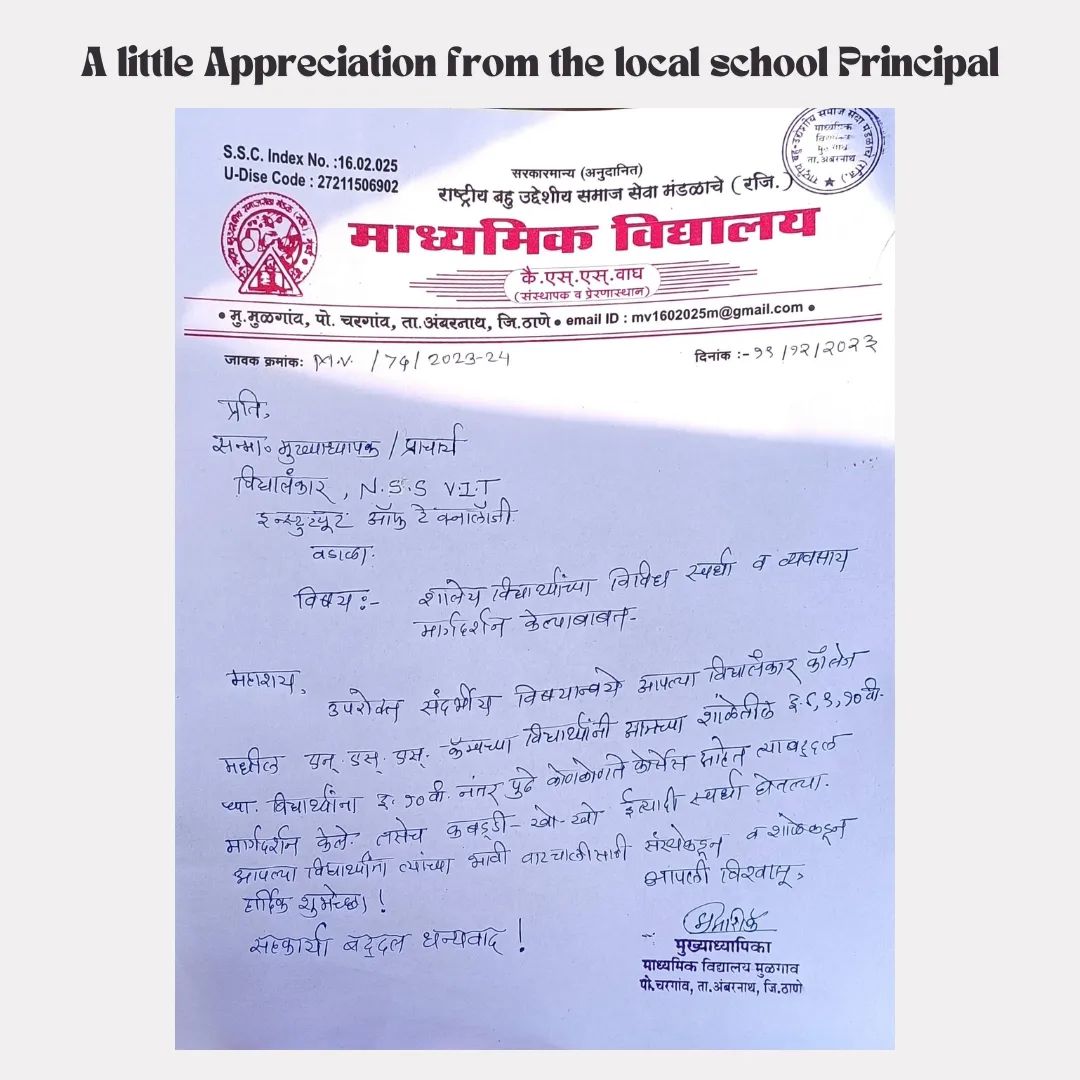 A little Appreciation from the local school Principal
S.S.C. Index No. :16.02.025
U-Dise Code : 27211506902
सरकारमान्य (अनुदानित)
राष्ट्रीय बहु उद्देशीय समाज सेवा मंडळाचे (रजि.)
माध्यमिक
ता. अंबरनाथ
माध्यमिक विद्यालय
कै.एस्.एस्.वाघ
(संस्थापक व प्रेरणास्थान)
• मु.मुळगांव, पो. चरगांव, ता.अंबरनाथ, जि.ठाणे • email ID : mv1602025m@gmail.com •
जावक क्रमांकः M.V. /74/2023-24
दिनांक :- /१२/२०२३
प्रति,
सन्मा॰ मुख्याध्यापक / प्राचार्य
विद्यालंकार, N.S.S V.I.T
इन्स्टुट्यूट ऑफ टेक्नालॉजी
वडाळा.
विषय :- शालेय विद्यार्थ्यांच्या विविध स्पर्धा व व्यवसाय
मार्गदर्शन केल्याबाबत-
महाशय,
उपरोक्त संदर्भीय विषयान्वये आपल्या विद्यालंकार कॉलेज
मधील एन्. एस्. एस्. कॅम्पच्या विद्यार्थ्यांनी आमच्या शाळेतील इ. ८, ९, १०वी-
च्या. विद्यार्थ्यांना इ. १०वी. नंतर पुढे कोणकोणते कोर्चेस आहेत त्याबद्दल
मार्गदर्शन केले. तसेच कबड्डी- खो-खो ईत्यादी स्पर्धा घेतल्या.
आपल्या विद्यार्थ्यांना त्यांच्या भावी वाटचालीसाठी संस्थेकडून व शाळेकडून
हार्दिक शुभेच्छा !
आपली विश्वासू,
सहकार्या बद्दल धन्यवाद !
मुख्याध्यापिका
माध्यमिक विद्यालय मुळगाव
पो.चरगांव, ता.अंबरनाथ, जि.ठाणे